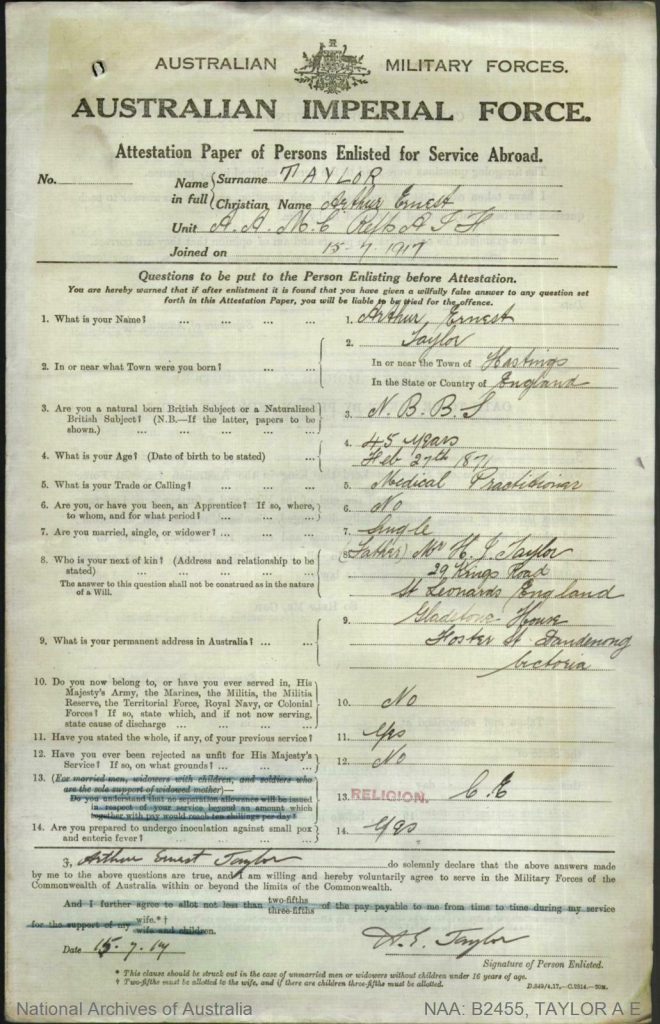 AUSTRALIAN MILITARY FORCES.
AUSTRALIAN IMPERIAL FORCE.
Attestation Paper of Persons Enlisted for Service Abroad.
No. Name in full { Surname TAYLOR
Christian Name Arthur Ernest
Unit A. A. M. C Refts A I F
Joined on 15-7-1917
Questions to be put to the Person Enlisting before Attestation.
You are hereby warned that if after enlistment it is found that you have given a wilfully false answer to any question set
forth in this Attestation Paper, you will be liable to be tried for the offence.
1. What is your Name? ... ... ... ... 1. Arthur Ernest
Taylor
2. In or near what Town were you born? ... ... 2. In or near the Town of Hastings
In the State or Country of England
3. Are you a natural born British Subject or a Naturalized
British Subject? (N.B.—If the latter, papers to be
shown.) ... ... ... ... ... 3. N. B. B. S
4. What is your Age? (Date of birth to be stated) ... 4. 45 years
Feb 27th 1871
5. What is your Trade or Calling? ... ... ... 5. Medical Practitioner
6. Are you, or have you been, an Apprentice? If so, where,
to whom, and for what period? ... ... ... 6. No
7. Are you married, single, or widower? ... ... 7. Single
8. Who is your next of kin? (Address and relationship to be
stated) ... ... ... ... ...
The answer to this question shall not be construed as in the nature
of a Will. 8. (Father) Mr H. J. Taylor
29 Kings Road
St Leonards England
9. What is your permanent address in Australia? ... ... 9. Gladstone House
Foster St Dandenong
Victoria
10. Do you now belong to, or have you ever served in, His
Majesty's Army, the Marines, the Militia, the Militia
Reserve, the Territorial Force, Royal Navy, or Colonial
Forces? If so, state which, and if not now serving,
state cause of discharge ... ... ... ... 10. No
11. Have you stated the whole, if any, of your previous service? 11. Yes
12. Have you ever been rejected as unfit for His Majesty's
Service? If so, on what grounds? ... ... 12. No
13. (For married men, widowers with children, and soldiers who
are the sole support of widowed mother)—
Do you understand that no separation allowance will be issued
in respect of your service beyond an amount which
together with pay would reach ten shillings per day? 13. RELIGION. C. E
14. Are you prepared to undergo inoculation against small pox
and enteric fever? ... ... ... ... 14. Yes
I, Arthur Ernest Taylor do solemnly declare that the above answers made
by me to the above questions are true, and I am willing and hereby voluntarily agree to serve in the Military Forces of the
Commonwealth of Australia within or beyond the limits of the Commonwealth.
And I further agree to allot not less than two-fifths three-fifths of the pay payable to me from time to time during my service
for the support of my wife.*† wife and children.
Date 15. 7. 17 A. E. Taylor
Signature of Person Enlisted.
* This clause should be struck out in the case of unmarried men or widowers without children under 16 years of age.
† Two-fifths must be allotted to the wife, and if there are children three-fifths must be allotted.
D.849/4.17.—C.2814.—20M.
National Archives of Australia NAA: B2455, TAYLOR A E